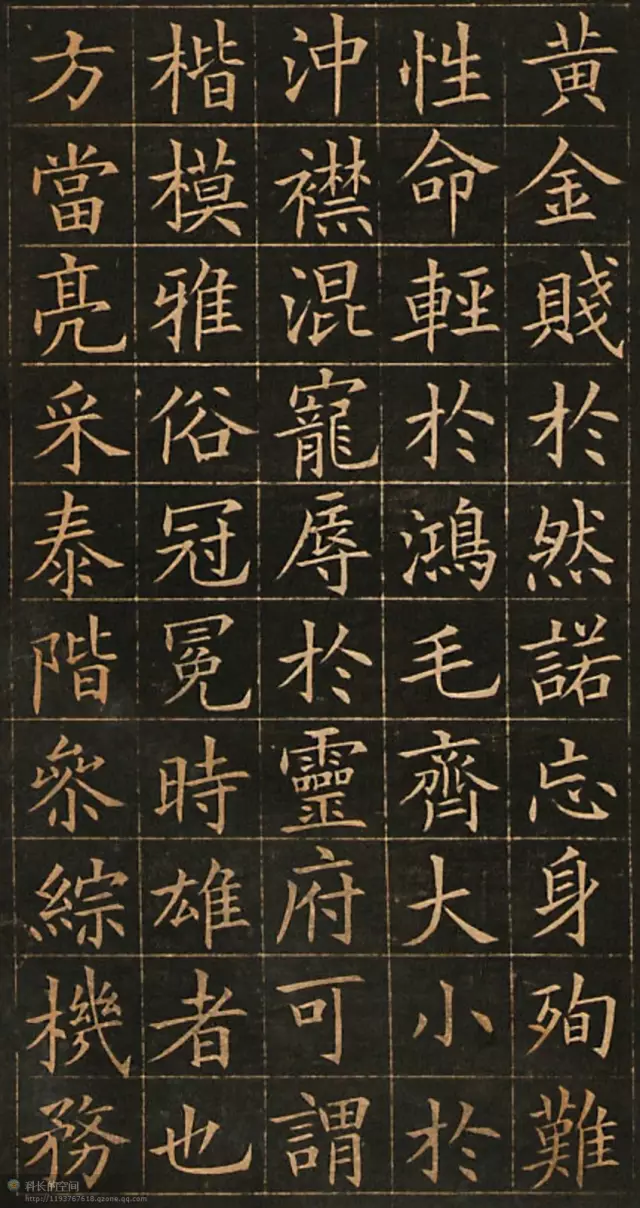 黄金賤於然諾忘身殉難
性命輕於鴻毛齊大小於
沖襟混寵辱於靈府可謂
楷模雅俗冠冕時雄者也
方當亮采泰階叅綜機務
科长的空间
http://1193767618.qzone.qq.com